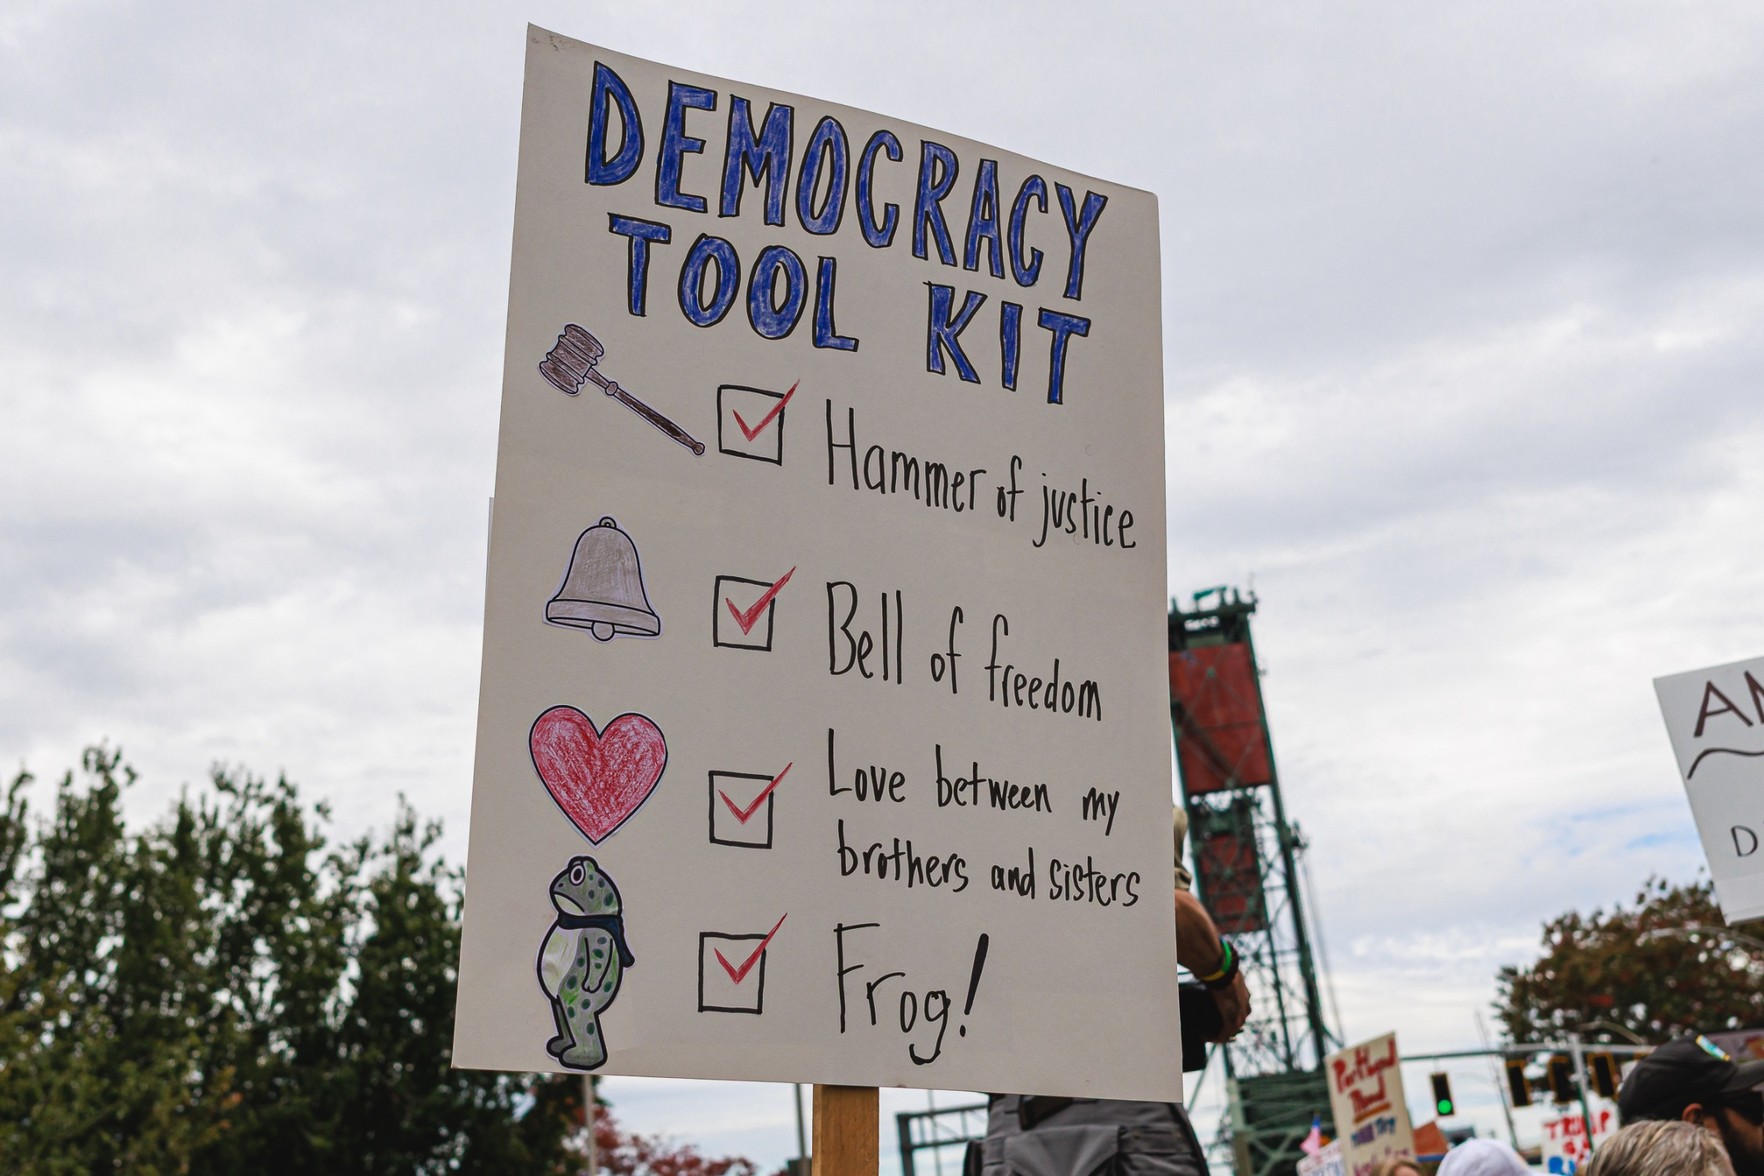 DEMOCRACY
TOOL KIT
Hammer of justice
Bell of freedom
Love between my
brothers and sisters
Frog!
TRUMP